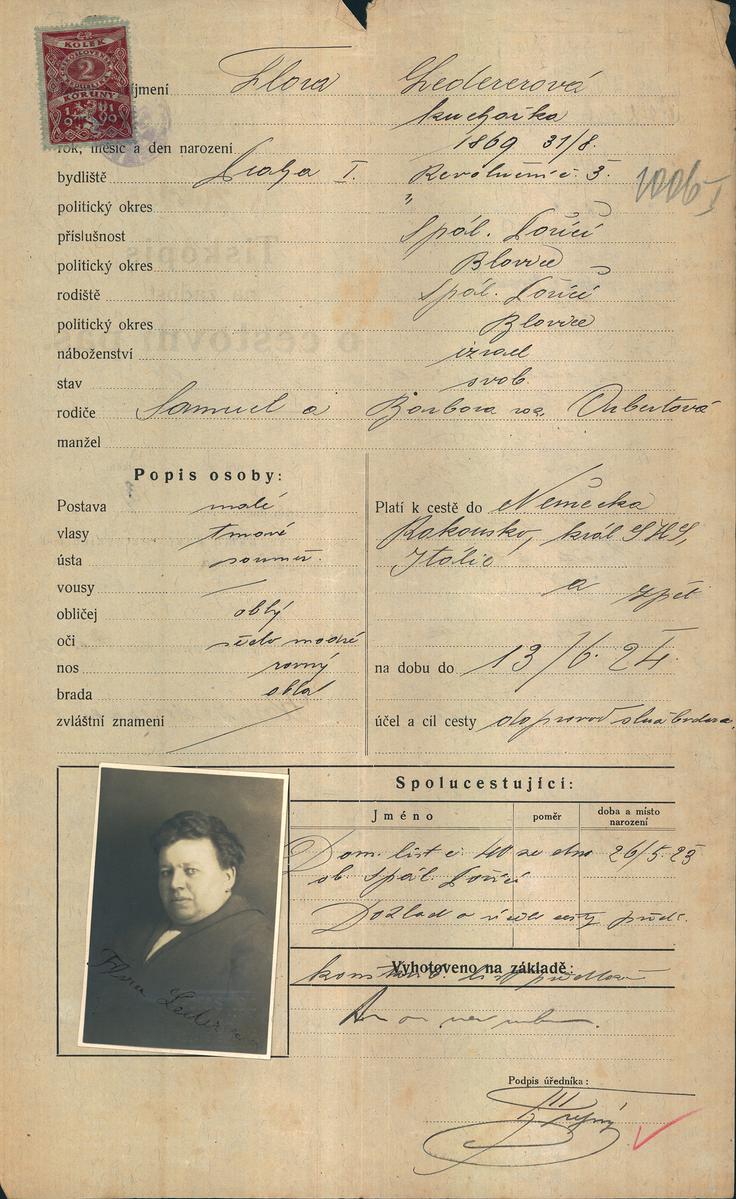 ČR
KOLEK
2
KORUNY
1919
jmení Flora Ledererová
kuchařka
rok, měsíc a den narození 1869 31/8.
bydliště Praha I. Revoluční č. 3.
1006/I
politický okres "
příslušnost Spál. Poříčí
politický okres Blovice
rodiště Spál. Poříčí
politický okres Blovice
náboženství izrael
stav svob.
rodiče Samuel a Barbora roz.
manžel
Popis osoby:
Postava malé
vlasy tmavé
ústa souměr.
vousy
obličej oblý
oči šedo modré
nos rovný
brada oblá
zvláštní znamení
Platí k cestě do Německa
Rakousko, král. SHS,
Itálie
a zpět
na dobu do 13/6. 24.
účel a cíl cesty doprovod
Spolucestující:
Jméno poměr doba a místo narození
Dom. list č. 40 ze dne 26/5. 23
ob. Spál. Poříčí
Doklad o účelu cesty předl.
Vyhotoveno na základě:
Podpis úředníka:
Flora Lederer